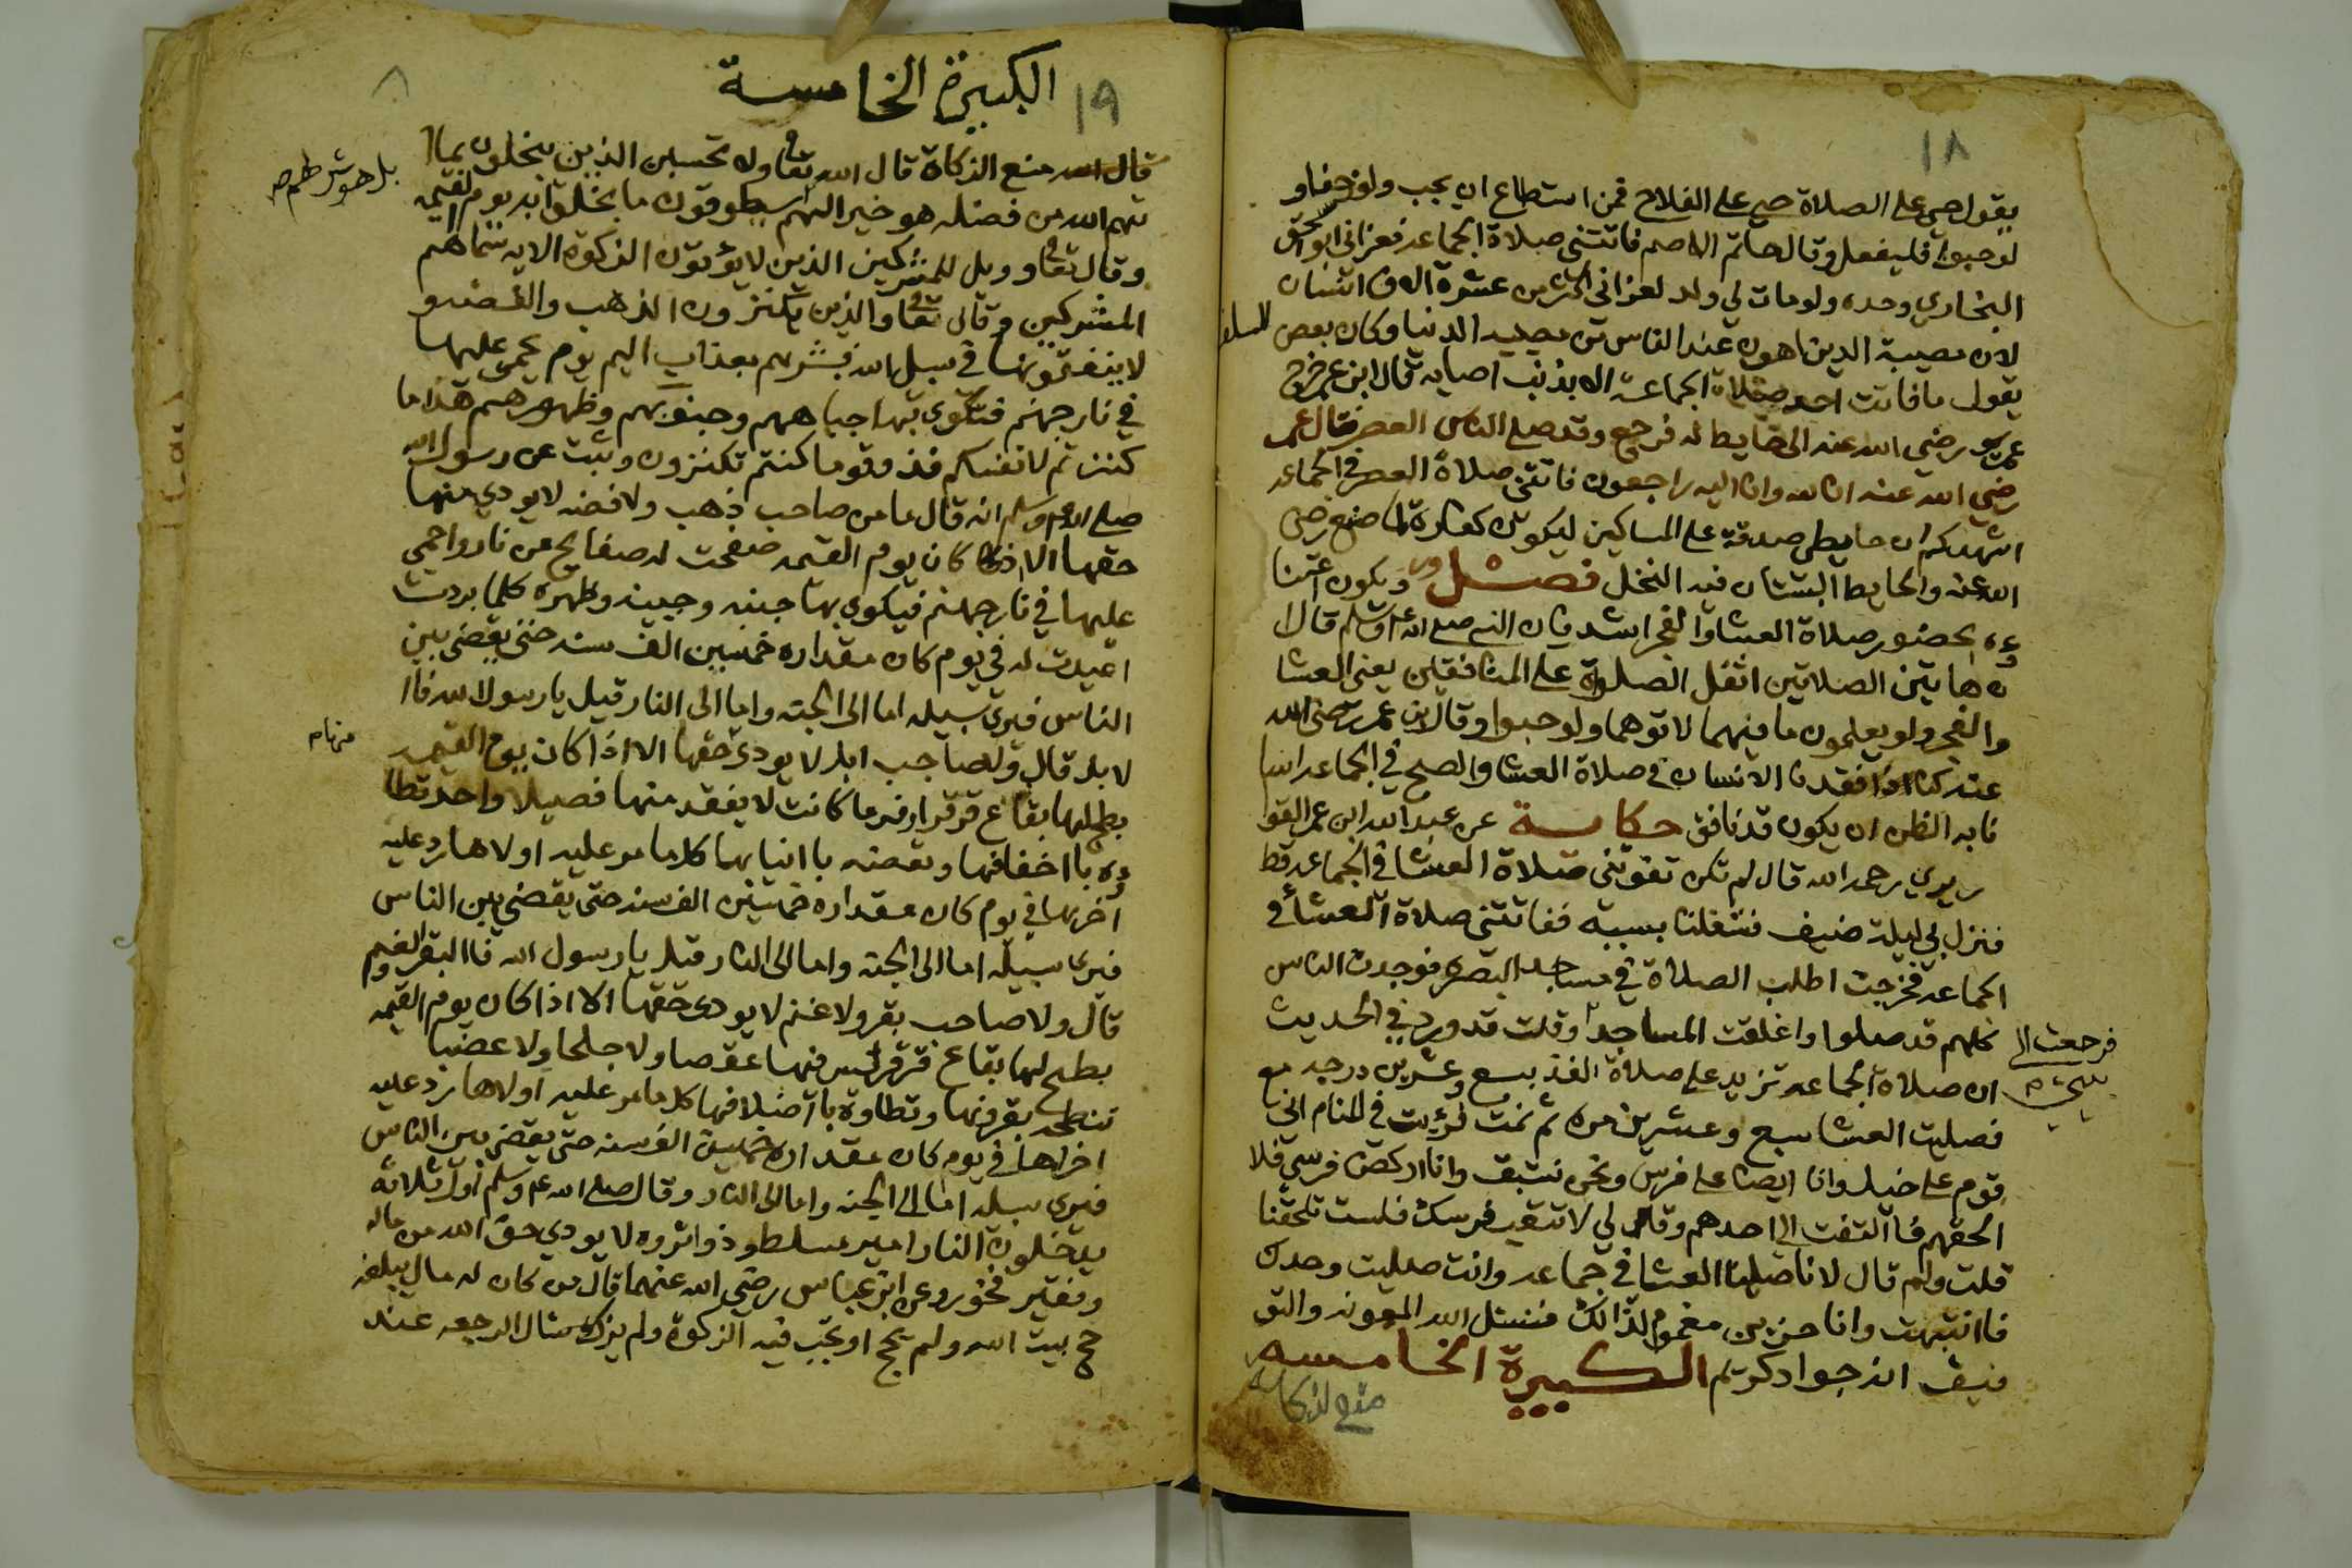 ١٨
يقول حي على الصلاة حي على الفلاح فمن استطاع ان يجب ولو زحفا و
لو حبوا فليفعل وقال حاتم الاصم فاتتني صلاة الجماعه فعزاني ابو اسحق
البخاري وحده ولو مات لي ولد لعزاني اكثر من عشرة الاف انسان
لان مصيبة الدين اهون عند الناس من مصيبه الدنيا وكان بعض السلف
يقول ما فاتت احد صلاة الجماعة الا بذنب اصابه قال ابن عمر خرج
عمر رضي الله عنه الى حايط له فرجع وقد صلى الناس العصر فقال عمر
رضي الله عنه انا لله وانا اليه راجعون فاتتني صلاة العصر في الجماعه
اشهدكم ان حايطي صدقة على المساكين ليكون كفارة لما صنع رضي
الله عنه والحايط البستان فيه النخل فصل ويكون اعتنا
وه بحضور صلاة العشا والفجر اشد فان النبي صلى الله عم وسلم قال ا
ن هاتين الصلاتين اثقل الصلوة على المنافقين يعني العشا
والفجر ولو يعلمون ما فيهما لاتوهما ولو حبوا وقال بن عمر رضي الله
عنه كنا اذا فقدنا الانسان في صلاة العشا والصبح في الجماعه اسا
نا به الظن ان يكون قد نافق حكاية عن عبد الله ابن عمر القوا
ريري رحمه الله قال لم تكن تفوتني صلاة العشا في الجماعه قط
فنزل بي ليلة ضيف فشغلنا بسببه ففاتتني صلاة العشا في
الجماعه فخرجت اطلب الصلاة في مساجد البصره فوجدت الناس
كلهم قد صلوا واغلقت المساجد وقلت قد ورد في الحديث
فرجعت الى بيتي
ان صلاة الجماعه تزيد على صلاة الفذ بسبع وعشرين درجه
فصليت العشا سبع وعشرين مره ثم نمت فرؤيت في المنام اني مع
قوم على خيل وانا ايضا على فرس ونحن نستبق وانا اركض فرسي فلا
الحقهم فاالتفت الي احدهم وقال لي لا تتعب فرسك فلست تلحقنا
قلت ولم قال لانا صلينا العشا في جماعه وانت صليت وحدك
فاانتبهت وانا حزين مغموم لذالك فنسئل الله المعونه والتو
فيق انه جواد كريم الكبيرة الخامسه
منع الزكاه
١٩
٨
الكبيرة الخامسة
قال الله منع الزكاة قال الله تعا ولا تحسبن الذين يبخلون بما ا
تهم الله من فضله هو خير الهم سيطوقون ما بخلوا به يوم القيمه
بل هو شر لهم صح
وقال تعا وويل للمشركين الذين لا يؤتون الزكوة الايه سماهم
المشركين وقال تعا والذين يكنزون الذهب والفضه و
لا ينفقونها في سبيل الله فبشرهم بعذاب اليم يوم يحمى عليها
في نار جهنم فتكوى بها جباههم وجنوبهم وظهورهم هذا ما
كنزتم لانفسكم فذوقوما كنتم تكنزون وثبت عن رسول الله
صلى الله عم وسلم انه قال ما من صاحب ذهب ولا فضه لا يودي منها
حقها الا اذا كان يوم القيمه صفحت له صفايح من نار واحمي
عليها في نار جهنم فيكوى بها جبنه وجبينه وظهره كلما بردت
اعيدت له في يوم كان مقداره خمسين الف سنه حتى يقضى بين
الناس فيرى سبيله اما الى الجنه واما الى النار قيل يا رسول الله فاا
لابل قال ولا صاحب ابل لا يودي حقها الا اذا كان يوم القيمه
منها م
بطح لها بقاع قرقر اوفر ما كانت لا يفقد منها فصيلا واحد تطا
وه بااخفافها وتعضه باانيابها كلما مر عليه اولاها رد عليه
اخرها في يوم كان مقداره خمسين الف سنه حتى يقضي بين الناس
فيرى سبيله اما الى الجنه واما الى النار قيل يا رسول الله فاالبقر والغنم
قال ولا صاحب بقر ولا غنم لا يودى حقها الا اذا كان يوم القيمه
بطح لها بقاع قرقر ليس فيها عقصا ولا جلحا ولا عضبا
تنطحه بقرونها وتطاوه بااضلافها كلما مر عليه اولاها رد عليه
اخراها في يوم كان مقداره خمسين الف سنه حتى يقضي بين الناس
فيرى سبيله اما الى الجنه واما الى النار وقال صلى الله عم وسلم اول ثلاثة
يدخلون النار امير مسلط وذو اثروه لا يودي حق الله من ماله
وفقير فخور وعن ابن عباس رضي الله عنهما قال من كان له مال يبلغه
حج بيت الله ولم يحج او تجب فيه الزكوة ولم يزك سال الرجعه عند